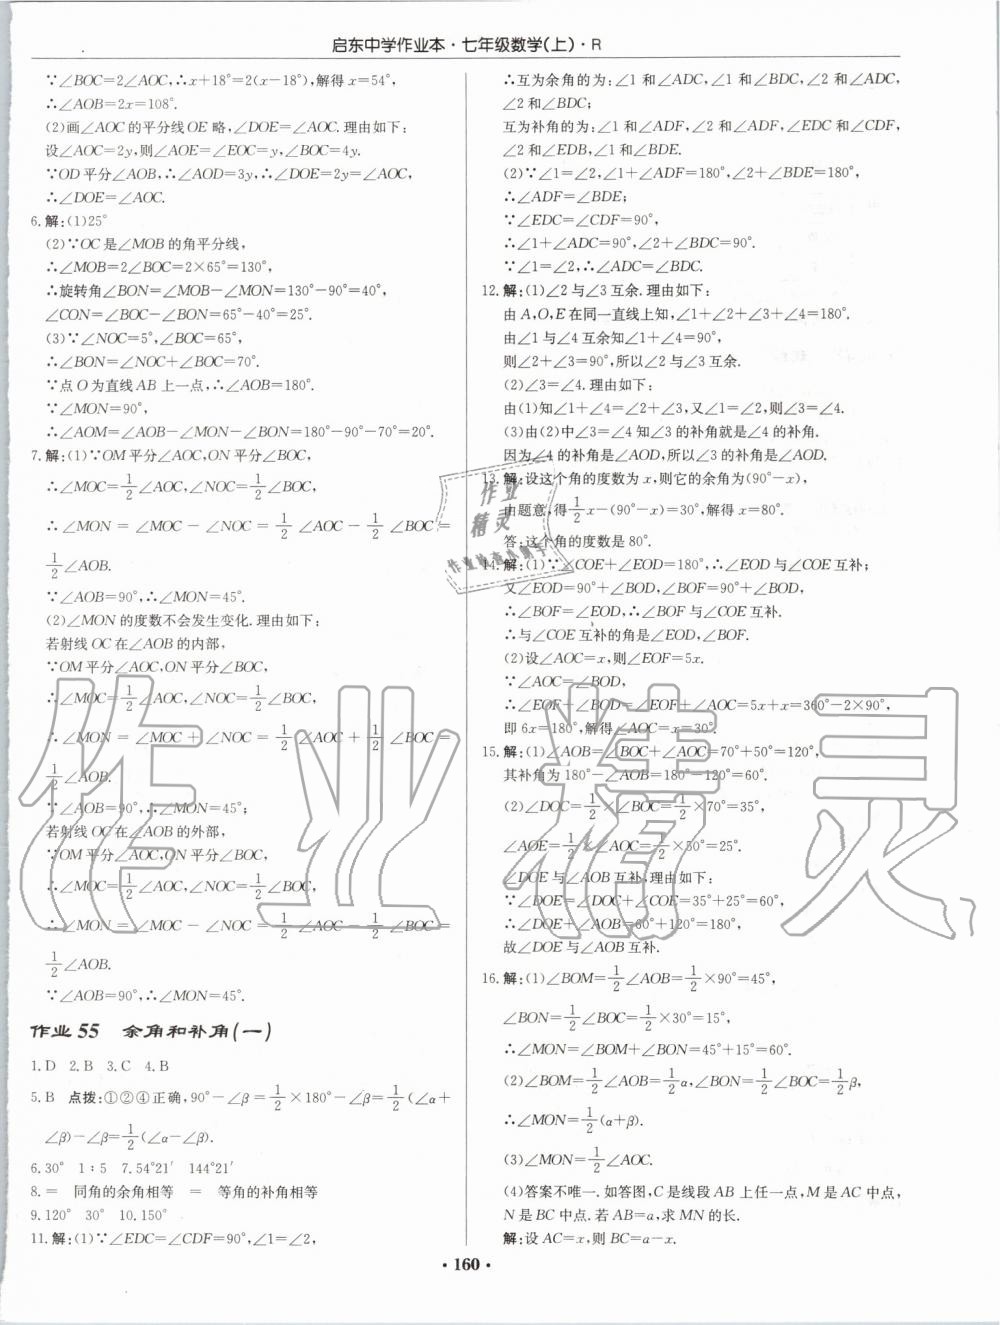 启东中学作业本·七年级数学(上)·R
∵∠BOC=2∠AOC,∴x+18°=2(x-18°),解得x=54°,
∴∠AOB=2x=108°.
(2)画∠AOC的平分线OE略,∠DOE=∠AOC.理由如下:
设∠AOC=2y,则∠AOE=∠EOC=y,∠BOC=4y.
∵OD平分∠AOB,∴∠AOD=3y,∴∠DOE=2y=∠AOC,
∴∠DOE=∠AOC.
6.解:(1)25°
(2)∵OC是∠MOB的角平分线,
∴∠MOB=2∠BOC=2×65°=130°,
∴旋转角∠BON=∠MOB-∠MON=130°-90°=40°,
∠CON=∠BOC-∠BON=65°-40°=25°.
(3)∵∠NOC=5°,∠BOC=65°,
∴∠BON=∠NOC+∠BOC=70°.
∵点O为直线AB上一点,∴∠AOB=180°.
∵∠MON=90°,
∴∠AOM=∠AOB-∠MON-∠BON=180°-90°-70°=20°.
7.解:(1)∵OM平分∠AOC,ON平分∠BOC,
∴∠MOC=1/2∠AOC,∠NOC=1/2∠BOC,
∴∠MON=∠MOC-∠NOC=1/2∠AOC-1/2∠BOC=
1/2∠AOB.
∵∠AOB=90°,∴∠MON=45°.
(2)∠MON的度数不会发生变化.理由如下:
若射线OC在∠AOB的内部,
∵OM平分∠AOC,ON平分∠BOC,
∴∠MOC=1/2∠AOC,∠NOC=1/2∠BOC,
∴∠MON=∠MOC+∠NOC=1/2∠AOC+1/2∠BOC=
1/2∠AOB.
∵∠AOB=90°,∴∠MON=45°;
若射线OC在∠AOB的外部,
∵OM平分∠AOC,ON平分∠BOC,
∴∠MOC=1/2∠AOC,∠NOC=1/2∠BOC,
∴∠MON=∠MOC-∠NOC=1/2∠AOC-1/2∠BOC=
1/2∠AOB.
∵∠AOB=90°,∴∠MON=45°.
作业55 余角和补角(一)
1.D 2.B 3.C 4.B
5.B 点拨:①②④正确,90°-∠β=1/2×180°-∠β=1/2(∠α+
∠β)-∠β=1/2(∠α-∠β).
6.30° 1:5 7.54°21′ 144°21′
8.= 同角的余角相等 = 等角的补角相等
9.120° 30° 10.150°
11.解:(1)∵∠EDC=∠CDF=90°,∠1=∠2,
∴互为余角的为:∠1和∠ADC,∠1和∠BDC,∠2和∠ADC,
∠2和∠BDC;
互为补角的为:∠1和∠ADF,∠2和∠ADF,∠EDC和∠CDF,
∠2和∠EDB,∠1和∠BDE.
(2)∵∠1=∠2,∠1+∠ADF=180°,∠2+∠BDE=180°,
∴∠ADF=∠BDE;
∵∠EDC=∠CDF=90°,
∴∠1+∠ADC=90°,∠2+∠BDC=90°.
∵∠1=∠2,∴∠ADC=∠BDC.
12.解:(1)∠2与∠3互余.理由如下:
由A,O,E在同一直线上知,∠1+∠2+∠3+∠4=180°.
由∠1与∠4互余知∠1+∠4=90°,
则∠2+∠3=90°,所以∠2与∠3互余.
(2)∠3=∠4.理由如下:
由(1)知∠1+∠4=∠2+∠3,又∠1=∠2,则∠3=∠4.
(3)由(2)中∠3=∠4知∠3的补角就是∠4的补角.
因为∠4的补角是∠AOD,所以∠3的补角是∠AOD.
13.解:设这个角的度数为x,则它的余角为(90°-x),
由题意,得1/2x-(90°-x)=30°,解得x=80°.
答:这个角的度数是80°.
14.解:(1)∵∠COE+∠EOD=180°,∴∠EOD与∠COE互补;
又∠EOD=90°+∠BOD,∠BOF=90°+∠BOD,
∴∠BOF=∠EOD,∴∠BOF与∠COE互补.
∴与∠COE互补的角是∠EOD,∠BOF.
(2)设∠AOC=x,则∠EOF=5x.
∵∠AOC=∠BOD,
∴∠EOF+∠BOD=∠EOF+∠AOC=5x+x=360°-2×90°,
即6x=180°,解得∠AOC=x=30°.
15.解:(1)∠AOB=∠BOC+∠AOC=70°+50°=120°,
其补角为180°-∠AOB=180°-120°=60°.
(2)∠DOC=1/2×∠BOC=1/2×70°=35°,
∠AOE=1/2×∠AOC=1/2×50°=25°.
∠DOE与∠AOB互补,理由如下:
∵∠DOE=∠DOC+∠COE=35°+25°=60°,
∴∠DOE+∠AOB=60°+120°=180°,
故∠DOE与∠AOB互补.
16.解:(1)∠BOM=1/2∠AOB=1/2×90°=45°,
∠BON=1/2∠BOC=1/2×30°=15°,
∴∠MON=∠BOM+∠BON=45°+15°=60°.
(2)∠BOM=1/2∠AOB=1/2α,∠BON=1/2∠BOC=1/2β,
∴∠MON=1/2(α+β).
(3)∠MON=1/2∠AOC.
(4)答案不唯一.如答图,C是线段AB上任一点,M是AC中点,
N是BC中点.若AB=a,求MN的长.
解:设AC=x,则BC=a-x.
·160·
作业精灵